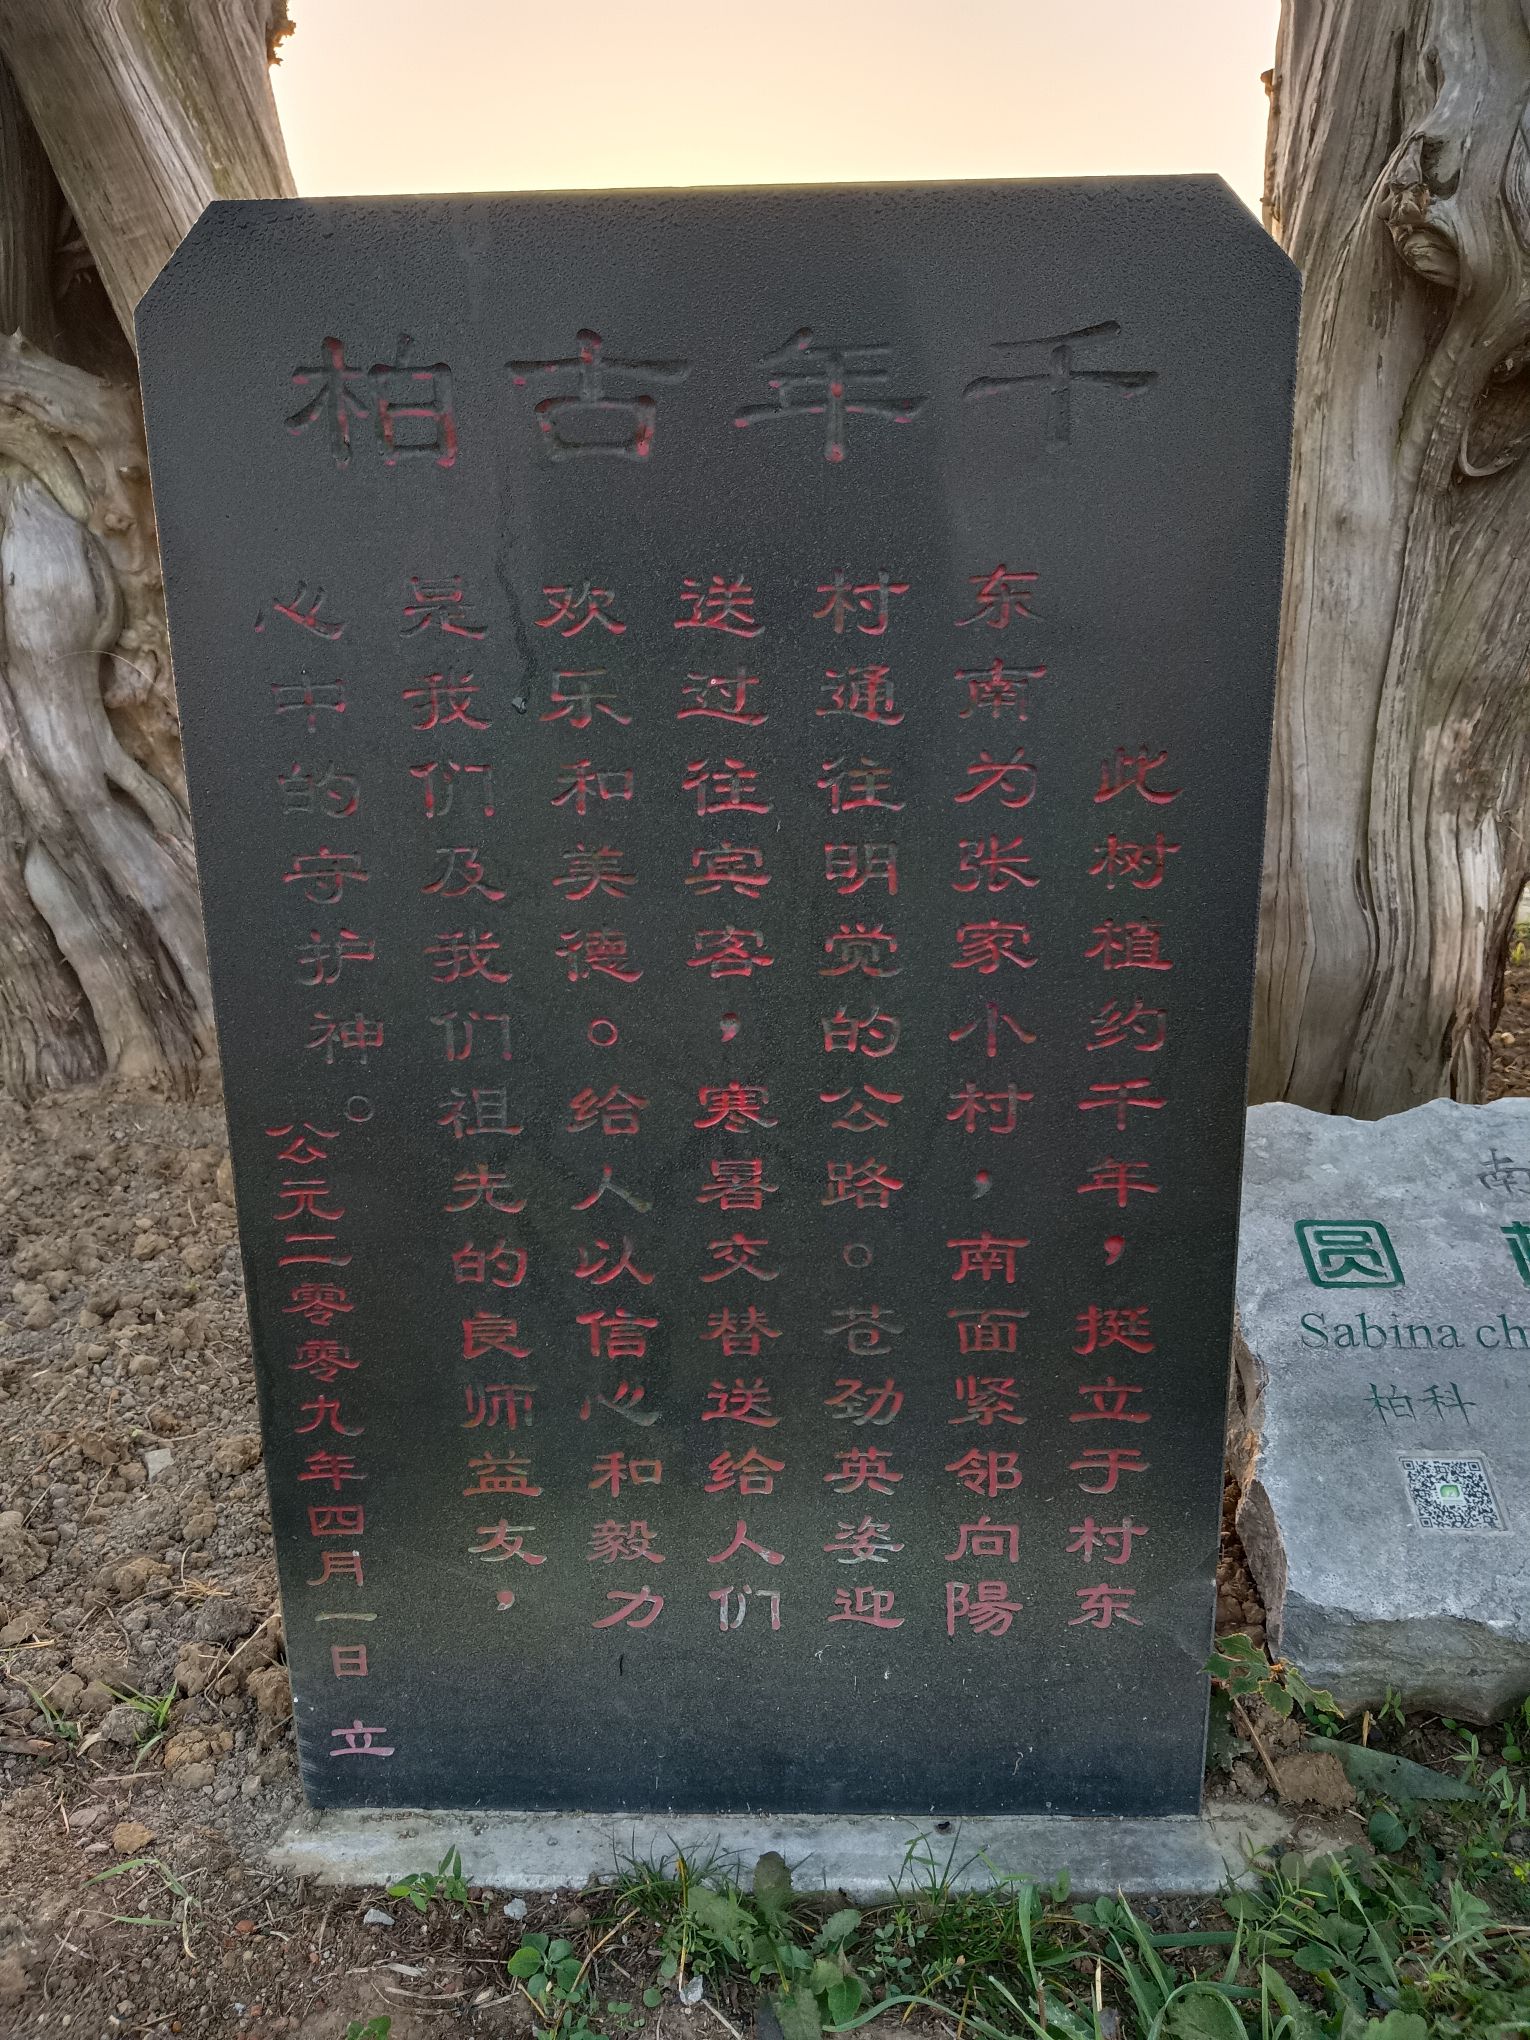 千年古柏
此树植约千年，挺立于村东
东南为张家小村，南面紧邻向陽
村通往明觉的公路。苍劲英姿迎
送过往宾客，寒暑交替送给人们
欢乐和美德。给人以信心和毅力
是我们及我们祖先的良师益友，
心中的守护神。
公元二零零九年四月一日 立
南
圆
Sabina ch
柏科